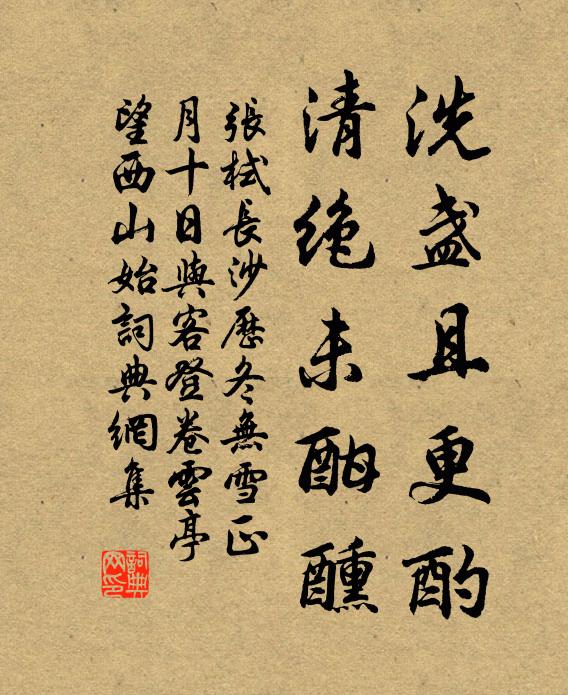 洗盏且更酌
清绝未酣醺
張栻長沙歷冬無雪正
月十日與客登卷雲亭
望西山始詞典網集
詞典
网印